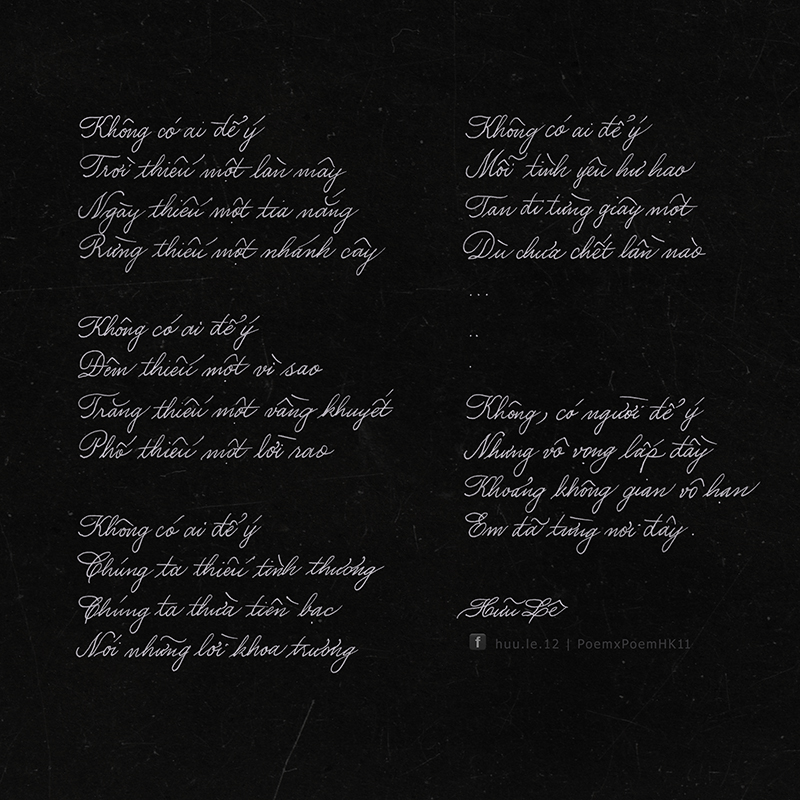 Không có ai để ý
Trời thiếu một làn mây
Ngày thiếu một tia nắng
Rừng thiếu một nhánh cây
Không có ai để ý
Đêm thiếu một vì sao
Trăng thiếu một vầng khuyết
Phố thiếu một lời rao
Không có ai để ý
Chúng ta thiếu tình thương
Chúng ta thừa tiền bạc
Nói những lời khoa trương
Không có ai để ý
Mối tình yêu hư hao
Tan đi từng giây một
Dù chưa chết lần nào
...
..
.
Không, có người để ý
Nhưng vô vọng lấp đầy
Khoảng không gian vô hạn
Em đã từng nơi đây.
Hữu Lê
f huu.le.12 | PoemxPoemHK11